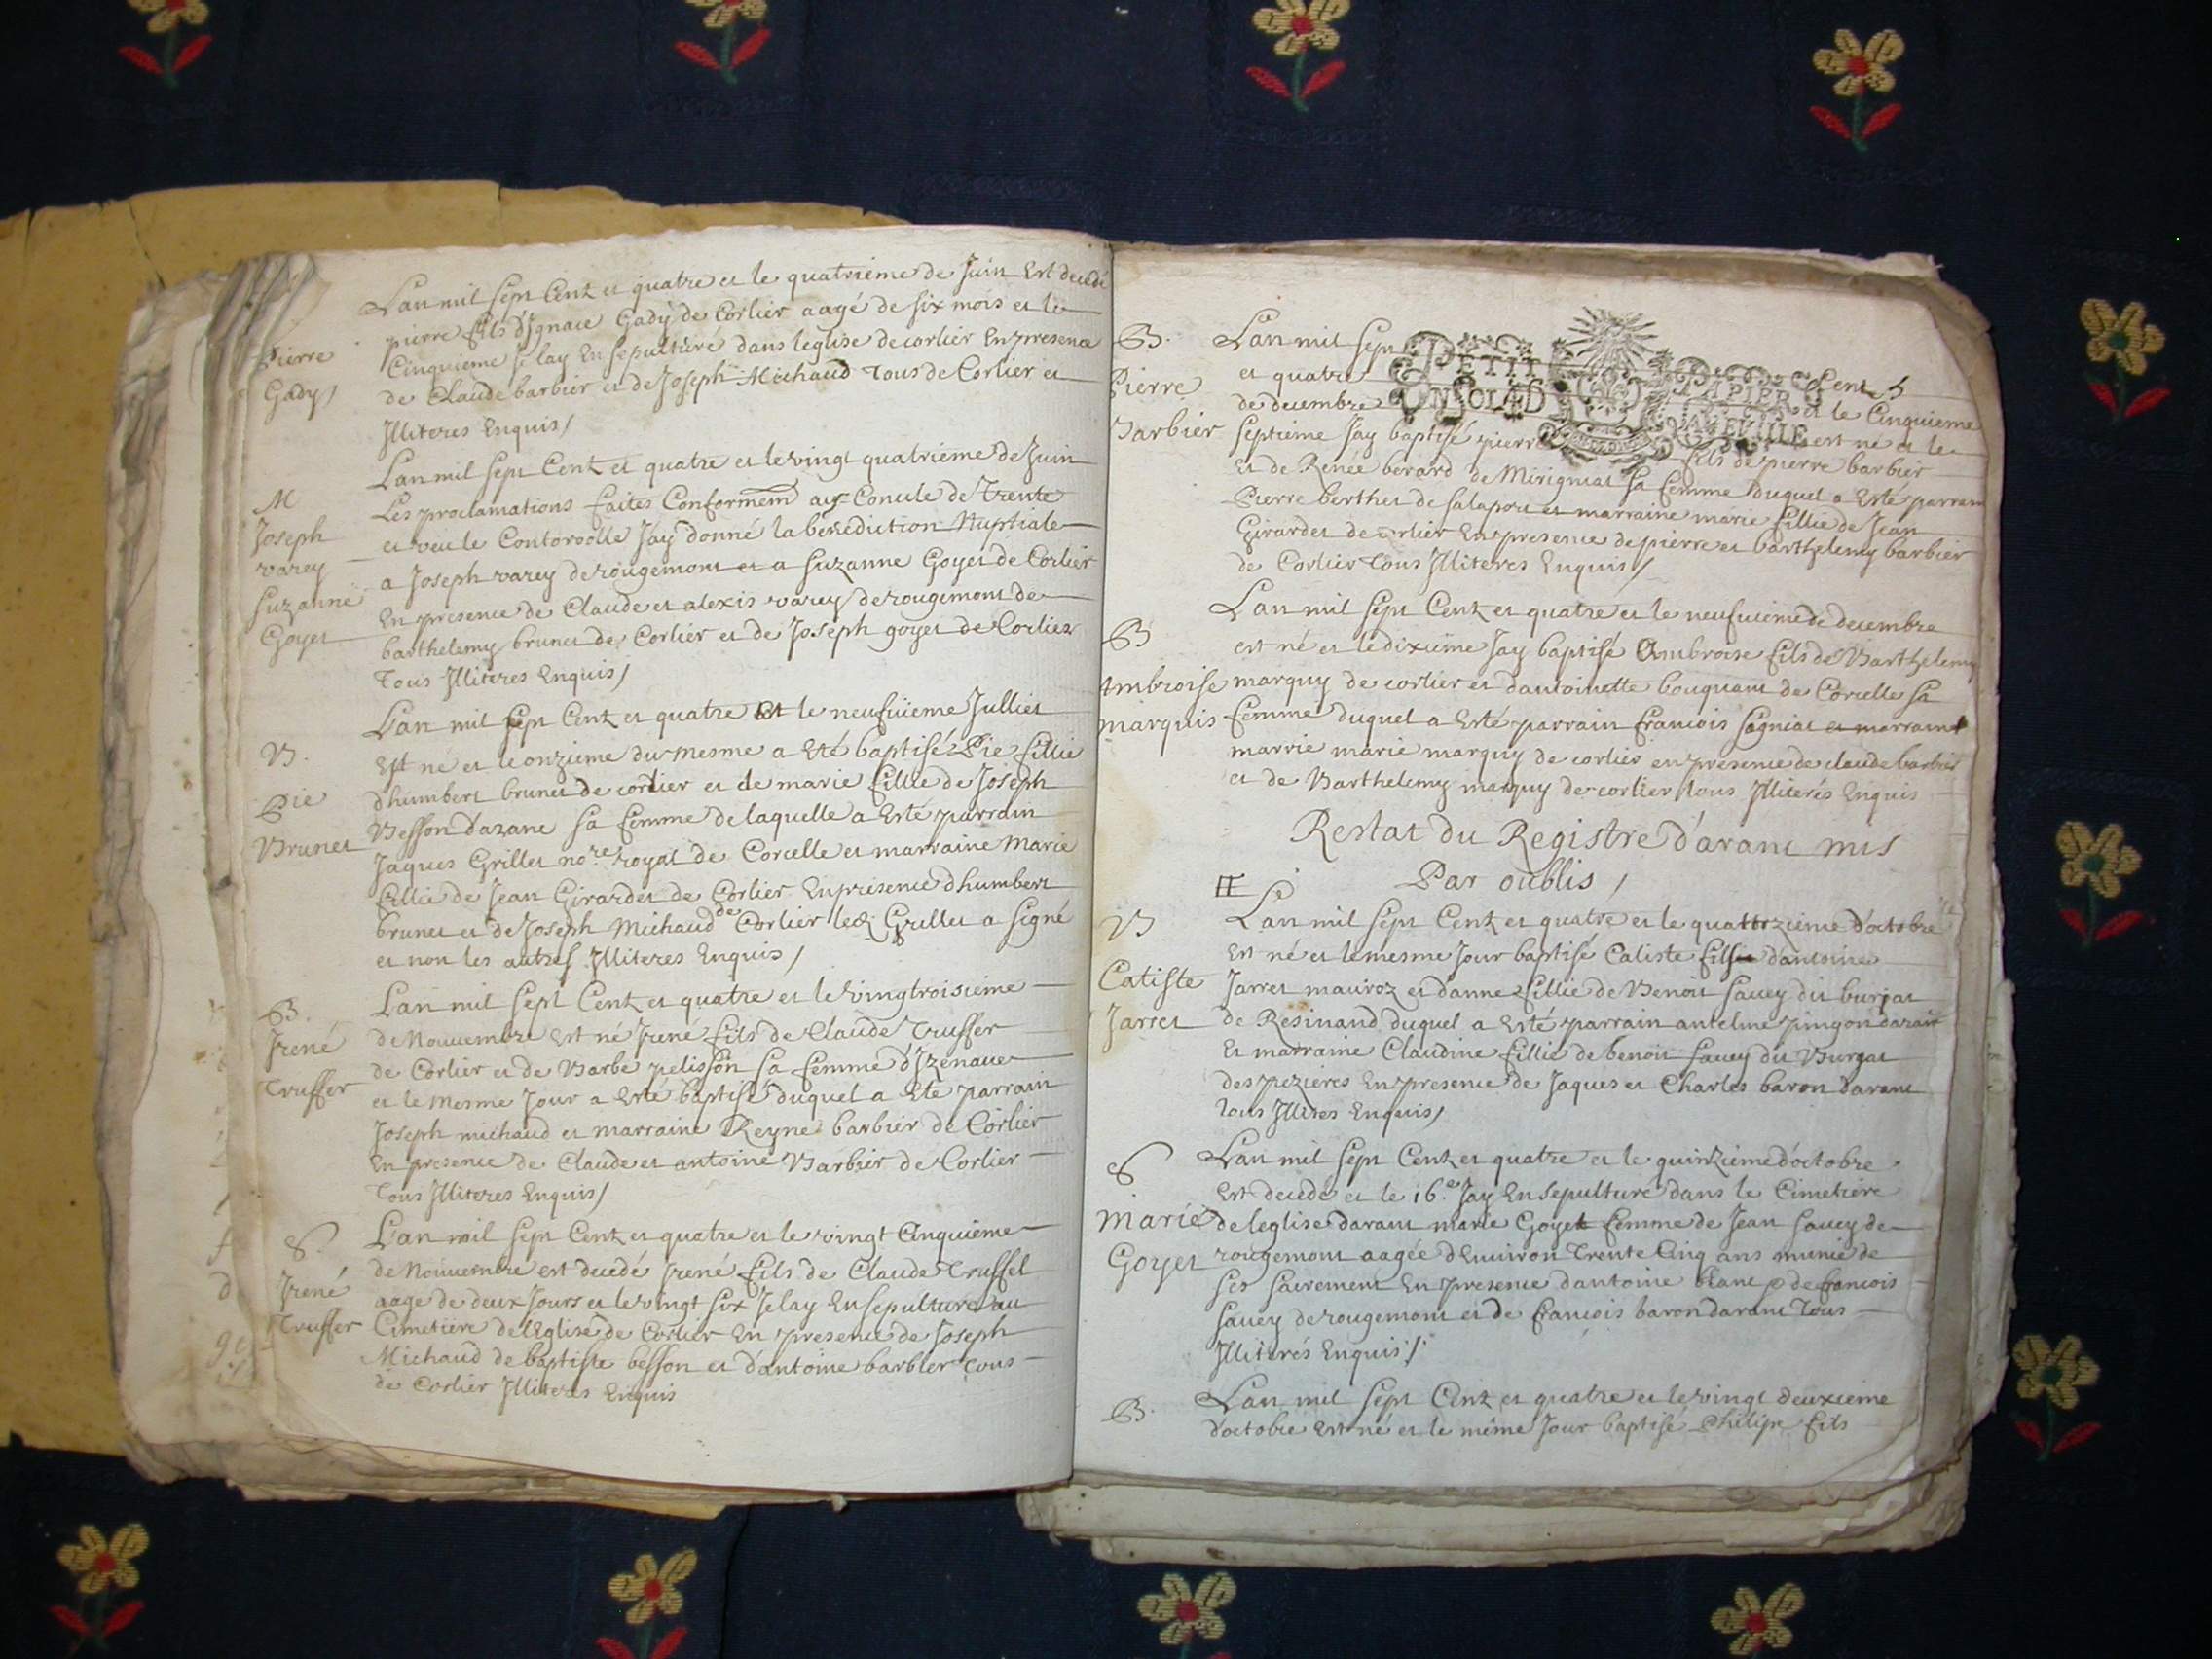 Lan mil sept Cent et quatre et le quatrieme de Juin Est decedé
pierre fils d'Ignace Gady de Corlier aagé de six mois et le
Pierre
Cinquieme je lay Ensepulturé dans leglise de corlier En presence
Gady/
de Claude barbier et de Joseph Michaud Tous de Corlier et
Illiteres Enquis/
Lan mil sept Cent et quatre et le vingt quatrieme de Juin
M
Les proclamations faites Conformem au Concile de Trente
Joseph
et veu le Controolle Jay donné la benediction Nuptiale
varey
a Joseph varey de rougemont et a Suzanne Goyet de Corlier
Suzanne
En presence de Claude et alexis varey de rougemont de
Goyet
barthelemy brunet de Corlier et de Joseph goyet de Corlier
Tous Illiteres Enquis/
Lan mil sept Cent et quatre Et le neufuieme Julliet
B.
Est né et le onzieme du mesme a Eté baptisé Pie fillie
Pie
dhumbert brunet de corlier et de marie fillie de Joseph
Brunet
Besson dazane sa femme de laquelle a Esté parrain
Jaques Grillet no.re royal de Corcelle et marraine Marie
fillie de Jean Girardet de Corlier En presence dhumbert
brunet et de Joseph Michaud de Corlier led. Grillet a signé
et non les autres Illiteres Enquis/
Lan mil sept Cent et quatre et le vingtroisieme
B.
de Nouuembre Est né Irené fils de Claude Truffer
Irené
de Corlier et de Barbe pelisson sa femme d'Izenaue
Truffer
et le mesme Jour a Esté baptisé duquel a Eté parrain
Joseph michaud et marraine Reyne barbier de Corlier
En presence de Claude et antoine Barbier de Corlier
Tous Illiteres Enquis/
Lan mil sept Cent et quatre et le vingt Cinquieme
S.
de Nouuembre est decedé Irené fils de Claude Truffet
Irené
aage de deux Jours et le vingt six Je lay Ensepulturé au
Truffer
Cimetiere de lEglise de Corlier En presence de Joseph
Michaud de baptiste besson et d'antoine barbier Tous
de Corlier Illiteres Enquis
PETIT PAPIER
B.
Lan mil sept Cent
Pierre
et quatre et le Cinquieme
Barbier
de decembre est né et le
septieme Jay baptisé pierre fils de pierre barbier
et de Renée berard de Mirignat sa femme duquel a Esté parrain
Pierre berthet de salaport et marraine marie fillie de Jean
Girardet de corlier En presence de pierre et barthelemy barbier
de Corlier Tous Illiteres Enquis/
Lan mil sept Cent et quatre et le neufuieme de decembre
B
est né et le dixieme Jay baptisé Ambroise fils de Barthelemy
Ambroise
marquy de corlier et dantoinette bouquant de Corcelle sa
marquis
femme duquel a Esté parrain francois sagniat et marraine
marrie marie marquy de corlier en presence de claude barbier
et de Barthelemy marquy de corlier tous Illiterés Enquis
Restat du Registre d'arant mis
Par oublis /
Lan mil sept Cent et quatre et le quattozieme d'octobre
B
Est né et le mesme Jour baptisé Caliste fils dantoine
Catiste
Jarret mauroz et danne fillie de Benoit sauey dit burjat
Jarret
de Resinand duquel a Esté parrain antelme pingon darant
Et marraine Claudine fillie de benoit sauey dit Burgat
des pezieres En presence de Jaques et Charles baron darant
tous Illites Enquis/
Lan mil sept Cent et quatre et le quinzieme d'octobre
S
Est decedé et le 16.e Jay Ensepulturé dans le Cimetiere
Marie
de leglise darant marie Goyet femme de Jean sauey de
Goyet
rougemont aagée dEnuiron Trente Cinq ans munie de
ses sacrement En presence dantoine blanc de francois
sauey de rougemont et de francois baron darant Tous
Illiterés Enquis/
Lan mil sept Cent et quatre et le vingt deuxieme
B.
d'octobre Est né et le même Jour baptisé Philipe fils